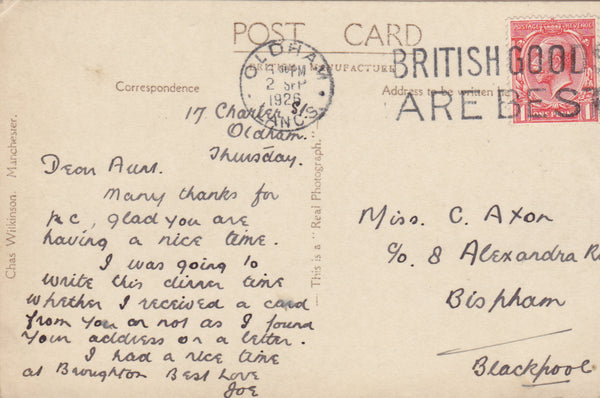 POST CARD
BRITISH MANUFACTURE
Correspondence
Address to be written he
OLDHAM
PM
2 SEP
1926
LANCS
BRITISH GOODS
ARE BEST
POSTAGE REVENUE
ONE PENNY
17 Charter St.
Oldham.
Thursday.
Dear Aunt.
Many thanks for
p.c, glad you are
having a nice time.
I was going to
write this dinner time
whether I received a card
from you or not as I found
your address on a letter.
I had a nice time
at Broughton Best Love
Joe
Miss. C. Axon
c/o. 8 Alexandra R
Bispham
Blackpool
Chas Wilkinson. Manchester.
This is a "Real Photograph."